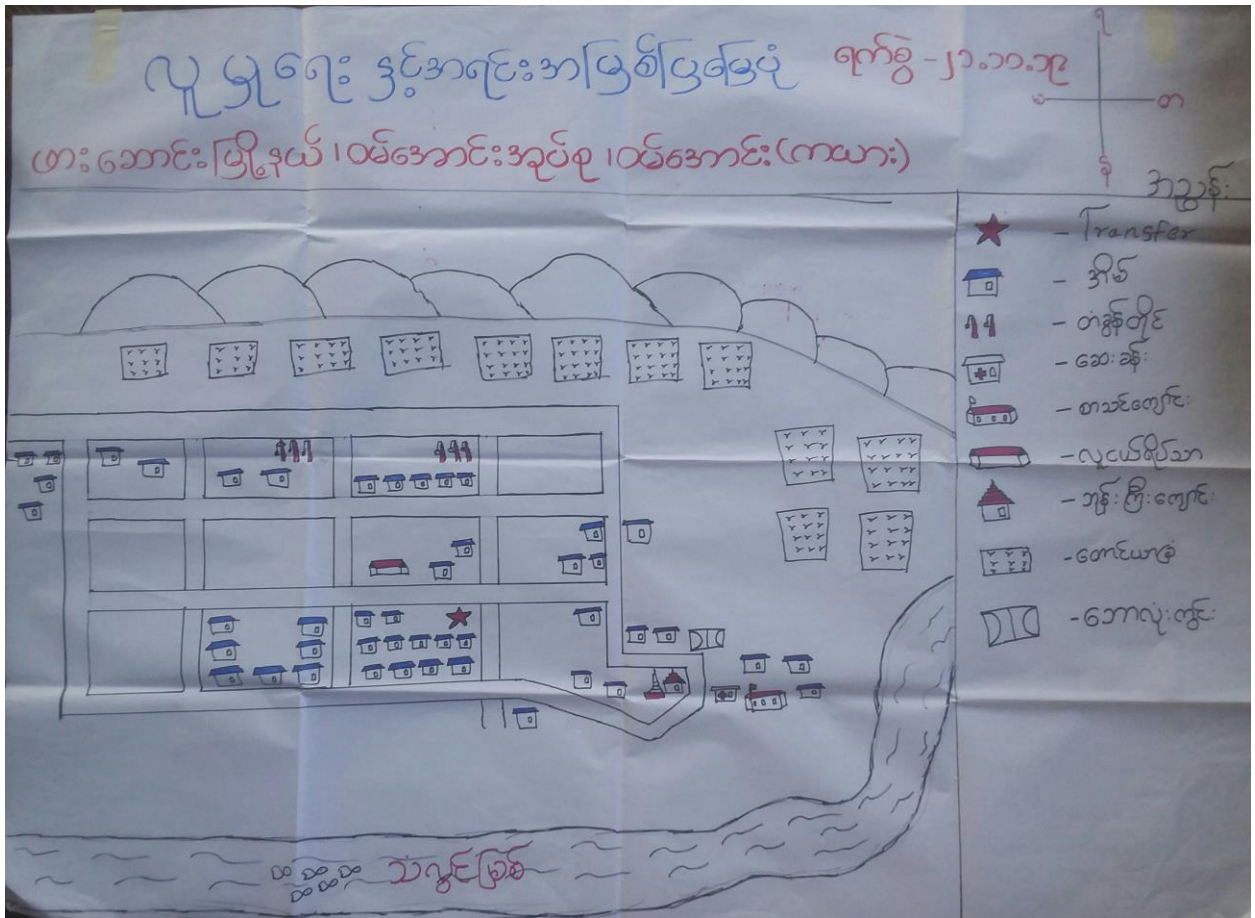 လူမှုရေး နှင့်အရင်းအမြစ်ပြမြေပုံ
ရက်စွဲ - ၂၁.၁၁.၁၉
ဖားဆောင်းမြို့နယ် ၊ ဝမ်အောင်းအုပ်စု ၊ ဝမ်အောင်း (ကယား)
မ
တ
န
အညွှန်း
- Transfer
- အိမ်
- တံခွန်တိုင်
- ဆေးခန်း
- စာသင်ကျောင်း
- လူငယ်ရိပ်သာ
- ဘုန်းကြီးကျောင်း
- တောင်ယာခြံ
- ဘောလုံးကွင်း
သံလွင်မြစ်